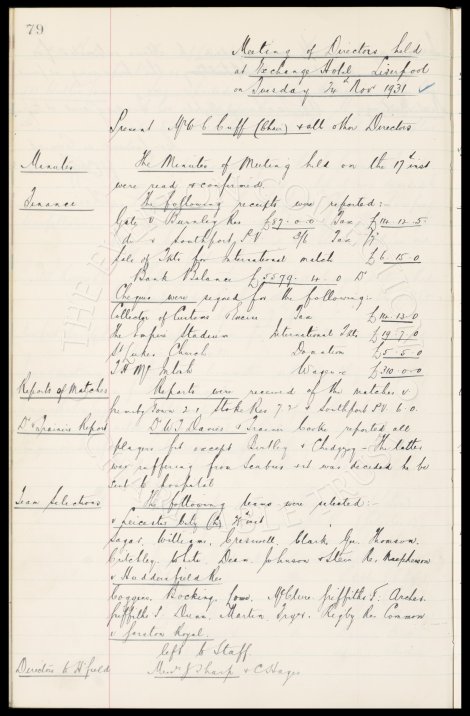 79
Meeting of Directors held
at Exchange Hotel Liverpool
on Tuesday 24th Novr 1931
Present Mr W C Cuff (Chair) & all other Directors
Minutes The Minutes of Meeting held on the 17th inst
were read & confirmed
Finance The following receipts were reported:-
Gate v Burnley Res £89-0-0 Tax £14.12.5
do v Southport S.V. 3/6 Tax
Sale of Tkts for International match £6.15.0
Bank Balance £5579.4.0 Dr
Cheques were signed for the following:-
Collector of Customs & Excise Tax £14.13.0
The Empire Stadium International Tkts £19.7.0
St Lukes Church Donation £5.5.0
T H McIntosh Wages £310.0.0
Reports of Matches Reports were received of the matches v
Grimsby Town 2.1, Stoke Res 7.2 & Southport S.V. 6.0.
Dr & Trainers Report Dr W T Davies & Trainer Cooke reported all
players fit except Bentley & Chedgzoy - the latter
was suffering from & it was decided he be
sent to hospital
Team Selections The following teams were selected:-
v Leicester City (h) 28th inst
Sagar, Williams, Cresswell, Clark, Gee, Thomson,
Critchley, White, Dean, Johnson & Stein Re. Macpherson
v Huddersfield Res
Coggins, Bocking, Lowe, McClure, Griffiths T. Archer
Griffiths S. Dunn, Martin, Fryer, Rigby Re. Common
v Garston Royal
left to Staff
Directors to H'field Messrs J Sharp & C Hayes
THE EVERTON COLLECTION
CHARITABLE TRUST